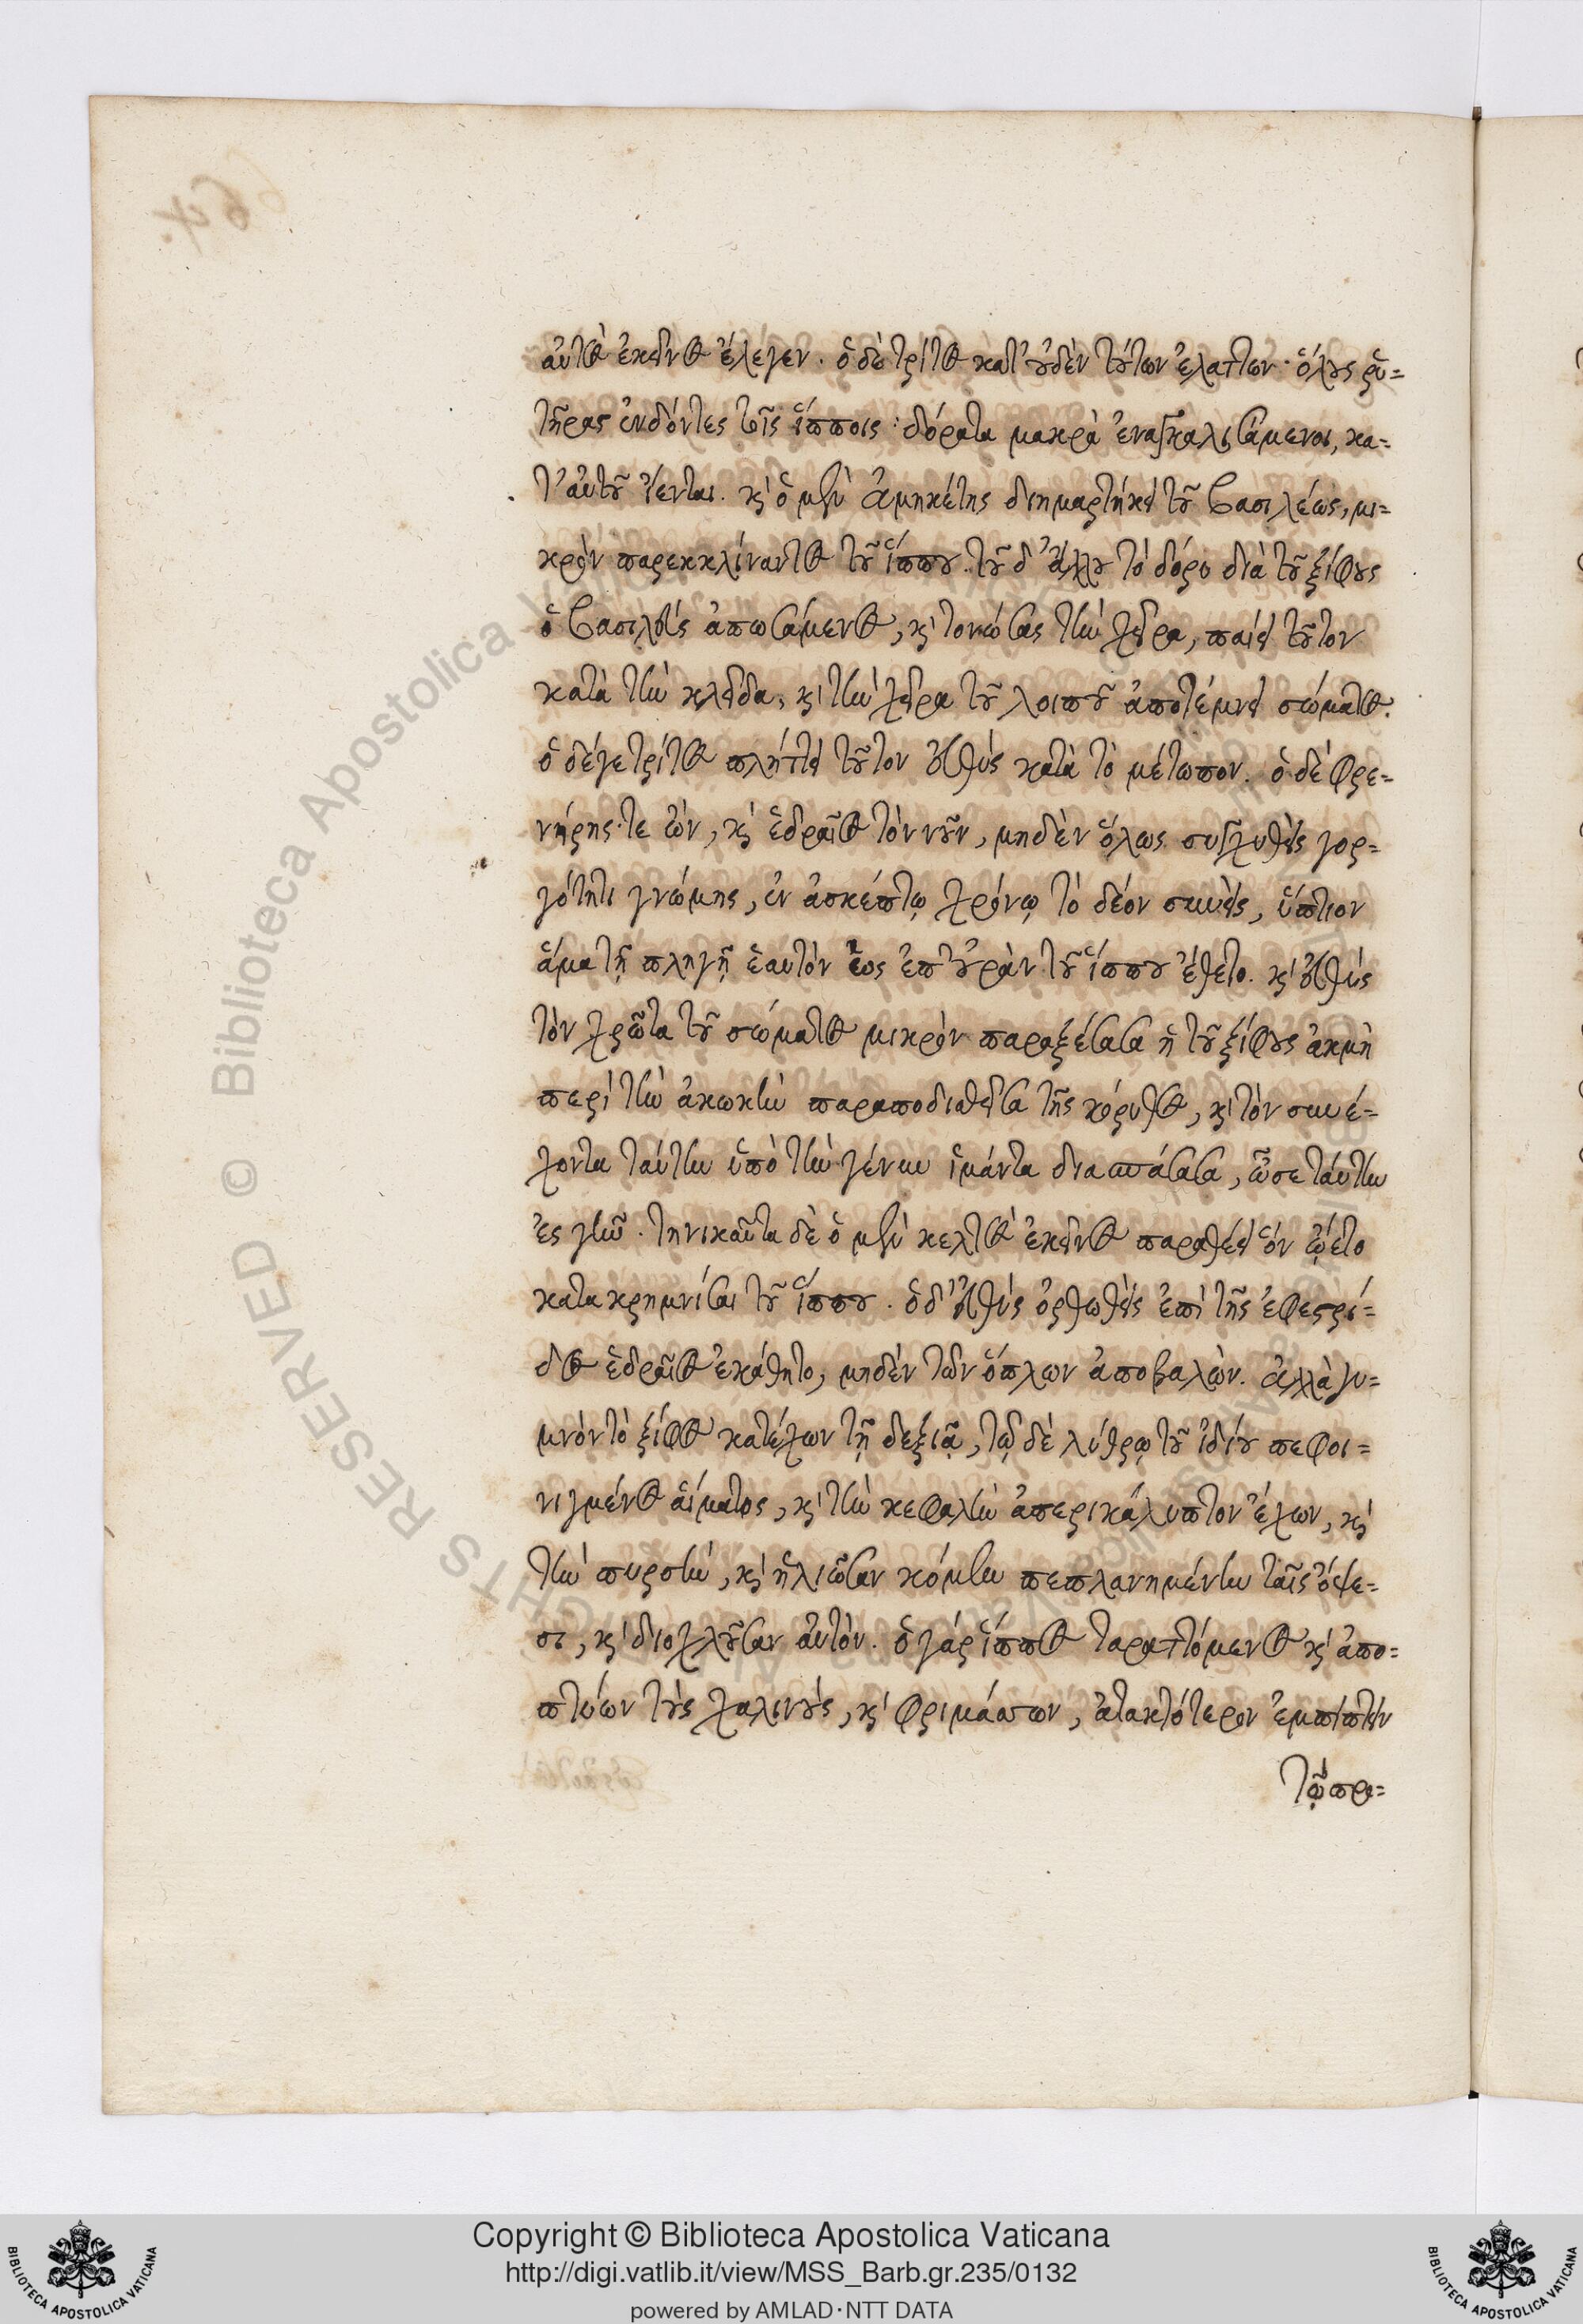 αὐτὸς ἐκεῖνος ἔλεγεν. ὁ δὲ τρίτος κατ' οὐδὲν τούτων ἐλάττων. ὅλους ῥυ=
τῆρας ἐνδόντες τοῖς ἵπποις· δόρατα μακρὰ ἐναγκαλισάμενοι, κα=
τ' αὐτοῦ ἵενται. καὶ ὁ μὲν Ἀμηκέτης διημαρτήκει τοῦ βασιλέως, μι=
κρὸν παρεκκλίναντος τοῦ ἵππου. τοῦ δ' ἄλλου τὸ δόρυ διὰ τοῦ ξίφους
ὁ βασιλεὺς ἀπωσάμενος, καὶ τονώσας τὴν χεῖρα, παίει τοῦτον
κατὰ τὴν κλεῖδα, καὶ τὴν χεῖρα τοῦ λοιποῦ ἀποτέμνει σώματος.
ὁ δέ γε τρίτος πλήττει τοῦτον εὐθὺς κατὰ τὸ μέτωπον. ὁ δὲ φρε=
νήρης τε ὢν, καὶ ἑδραῖος τὸν νοῦν, μηδὲν ὅλως συγχυθεὶς γορ=
γότητι γνώμης, ἐν ἀσκέπτῳ χρόνῳ τὸ δέον συνεὶς, ὕπτιον
ἅμα τῇ πληγῇ ἑαυτὸν ἕως ἐπ' οὐρὰν τοῦ ἵππου ἔθετο. καὶ εὐθὺς
τὸν χρῶτα τοῦ σώματος μικρὸν παραξέσασα ἡ τοῦ ξίφους ἀκμὴ
περὶ τὴν ἀκωκὴν παραποδισθεῖσα τῆς κόρυθος, καὶ τὸν συνέ=
χοντα ταύτην ὑπὸ τὴν γένυν ἱμάντα διασπάσασα, ὦσε ταύτην
ἐς γῆν. τηνικαῦτα δὲ ὁ μὲν κελτὸς ἐκεῖνος παραθέει ὃν ᾤετο
κατακρημνίσαι τοῦ ἵππου. ὁ δ' εὐθὺς ὀρθωθεὶς ἐπὶ τῆς ἐφεστρί=
δος ἑδραῖος ἐκάθητο, μηδὲν τῶν ὅπλων ἀποβαλών. ἀλλὰ γυ=
μνὸν τὸ ξίφος κατέχων τῇ δεξιᾷ, τῷ δὲ λύθρῳ τοῦ ἰδίου πεφοι=
νιγμένος αἵματος, καὶ τὴν κεφαλὴν ἀπερικάλυπτον ἔχων, καὶ
τὴν πυρσὴν, καὶ ἡλιῶσαν κόμην πεπλανημένην ταῖς ὄψε=
σι, καὶ διοχλοῦσαν αὐτόν. ὁ γὰρ ἵππος ταραττόμενος καὶ ἀπο=
πτύων τοὺς χαλινοὺς, καὶ φριμάσσων, ἀτακτότερον ἐμπίπτειν
τῷ προ=